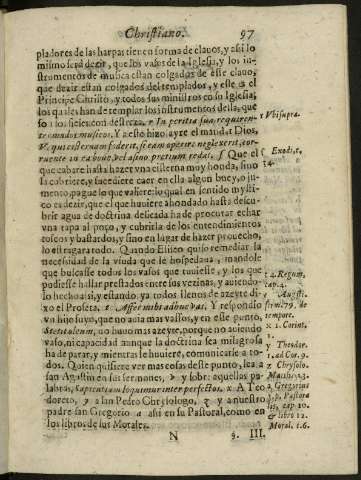 Christiano. 97
pladores de las harpas tienen forma de clauos, y assi lo
mismo será dezir, que los vasos de la Iglesia, y los in-
strumentos de musica estan colgados de este clauo,
que dezir estan colgados del templador, y este es el
Principe Christo, y todos sus ministros en su Iglesia;
los quales han de templar los instrumentos della, que
so los fieles con destreza. r In peritia sua requiren-
tes modos musicos. Y a esto hizo, ayre el mandar Dios,
Vt qui cisternam foderit, si eam aperire neglexerit, cor-
ruente in ea boue, vel asino pretium redat. s Que el
que cabare hasta hazer vna cisterna muy honda, sino
la cubriere, y sucediere caer en ella algun buey, o ju-
mento pague lo que valiere: lo qual en sentido mysti-
co es dezir, que el que huuiere ahondado hasta descu-
brir agua de doctrina delicada ha de procurar echar
vna tapa al poço, y cubrirla de los entendimientos
toscos y bastardos, y sino en lugar de hazer prouecho,
lo estragara todo. Quando Eliseo quiso remediar la
necessidad de la viuda que le hospedaua, mandole
que buscasse todos los vasos que tuuiesse, y los que
pudiesse hallar prestados entre sus vezinas, y auiendo-
lo hecho assi, y estando ya todos llenos de azeyte di-
xo el Profeta. t Affer mihi adhuc vas. Y respondio
vn hijo suyo, que no auia mas vassos, y en este punto,
Stetit oleum, no huuo mas azeyte, porque no auiendo
vaso, ni capacidad aunque la doctrina sea milagrosa
ha de parar, y mientras le huuiere, comunicarse a to-
dos. Quien quisiere ver mas cosas deste punto, lea a
san Agustin en sus sermones, v y sobre aquellas pa-
labras, Sapientiam loquimur inter perfectos. x A Teo
doreto, y a san Pedro Chrysologo, z y a nuestro
padre san Gregorio a assi en su Pastoral, como en
los libros de sus Morales.
N 9. III.
r Vbi supra.
s Exodi c.
t 4. Regum.
cap. 4.
August.
ser. 179. de
tempore.
x 1. Corint.
y Theodor.
1. ad Cor. 9.
z Chrysolo.
a Gregorius
lib. Pastora
lis, cap. 10.
& libro 12.
Moral. c. 6.